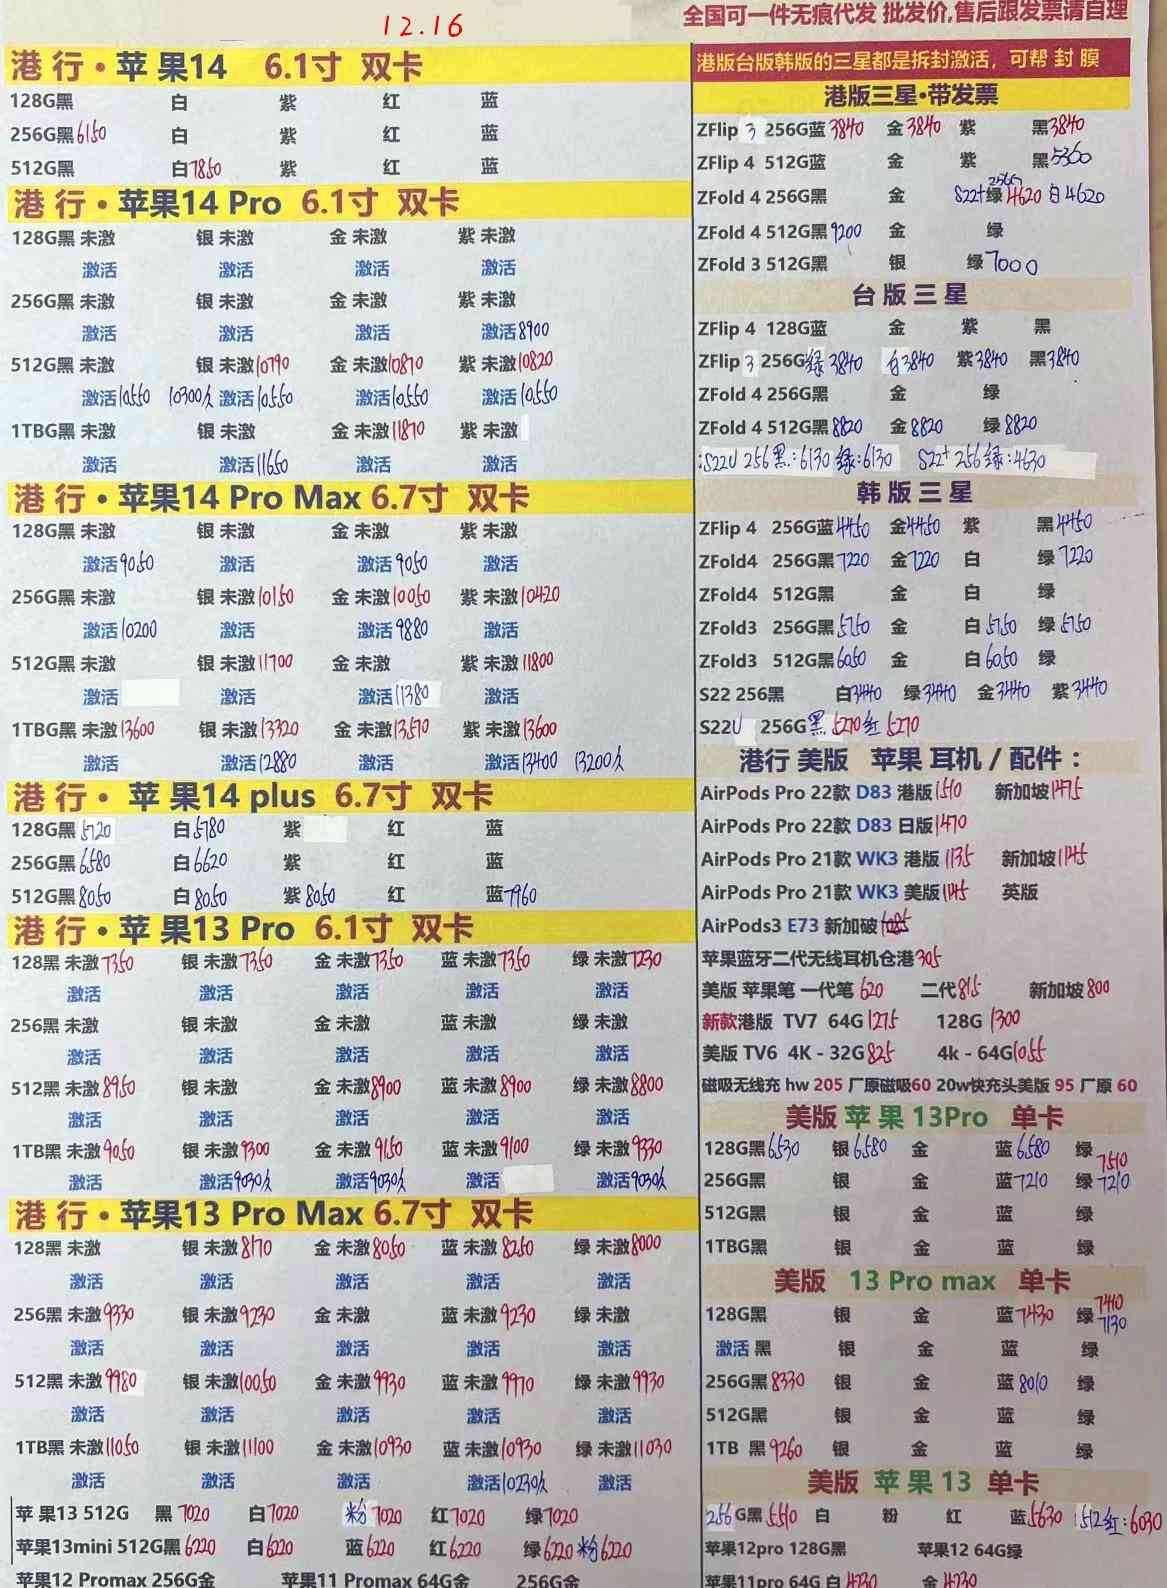 12.16
全国可一件无痕代发 批发价,售后跟发票请自理
港行·苹果14 6.1寸 双卡
128G黑 白 紫 红 蓝
256G黑6150 白 紫 红 蓝
512G黑 白7850 紫 红 蓝
港行·苹果14 Pro 6.1寸 双卡
128G黑 未激 银 未激 金 未激 紫 未激
激活 激活 激活 激活
256G黑 未激 银 未激 金 未激 紫 未激
激活 激活 激活 激活8900
512G黑 未激 银 未激10790 金 未激10870 紫 未激10820
激活10550 10300久 激活10550 激活10550 激活10550
1TBG黑 未激 银 未激 金 未激11870 紫 未激
激活 激活11650 激活 激活
港行·苹果14 Pro Max 6.7寸 双卡
128G黑 未激 银 未激 金 未激 紫 未激
激活9050 激活 激活9050 激活
256G黑 未激 银 未激10150 金 未激10050 紫 未激10420
激活10200 激活 激活9880 激活
512G黑 未激 银 未激11700 金 未激 紫 未激11800
激活 激活 激活11380 激活
1TBG黑 未激13600 银 未激13320 金 未激13570 紫 未激13600
激活 激活12880 激活 激活13400 13200久
港行·苹果14 plus 6.7寸 双卡
128G黑5720 白5780 紫 红 蓝
256G黑6580 白6620 紫 红 蓝
512G黑8050 白8050 紫8050 红 蓝7960
港行·苹果13 Pro 6.1寸 双卡
128黑 未激7350 银 未激7350 金 未激7350 蓝 未激7350 绿 未激7230
激活 激活 激活 激活 激活
256黑 未激 银 未激 金 未激 蓝 未激 绿 未激
激活 激活 激活 激活 激活
512黑 未激8950 银 未激 金 未激8900 蓝 未激8900 绿 未激8800
激活 激活 激活 激活 激活
1TB黑 未激9050 银 未激9300 金 未激9150 蓝 未激9100 绿 未激9330
激活 激活9030久 激活9030久 激活 激活9030久
港行·苹果13 Pro Max 6.7寸 双卡
128黑 未激 银 未激8170 金 未激8050 蓝 未激8250 绿 未激8000
激活 激活 激活 激活 激活
256黑 未激9330 银 未激9230 金 未激 蓝 未激9230 绿 未激
激活 激活 激活 激活 激活
512黑 未激9980 银 未激10050 金 未激9930 蓝 未激9970 绿 未激9930
激活 激活 激活 激活 激活
1TB黑 未激11050 银 未激11100 金 未激10930 蓝 未激10930 绿 未激11030
激活 激活 激活 激活10230久 激活
苹果13 512G 黑7020 白7020 粉7020 红7020 绿7020
苹果13mini 512G黑6220 白6220 蓝6220 红6220 绿6220 粉6220
苹果12 Promax 256G金 苹果11 Promax 64G金 256G金
港版台版韩版的三星都是拆封激活，可帮 封 膜
港版三星·带发票
ZFlip 3 256G蓝3840 金3840 紫 黑3840
ZFlip 4 512G蓝 金 紫 黑5360
ZFold 4 256G黑 金 S22+256G绿4620 白4620
ZFold 4 512G黑9200 金 绿
ZFold 3 512G黑 银 绿7000
台版三星
ZFlip 4 128G蓝 金 紫 黑
ZFlip 3 256G绿3840 白3840 紫3840 黑3840
ZFold 4 256G黑 金 绿
ZFold 4 512G黑8820 金8820 绿8820
:S22U 256黑:6130 绿:6130 S22+ 256绿:4630
韩版三星
ZFlip 4 256G蓝4450 金4450 紫 黑4450
ZFold4 256G黑7220 金7220 白 绿7220
ZFold4 512G黑 金 白 绿
ZFold3 256G黑5750 金 白5750 绿5750
ZFold3 512G黑6050 金 白6050 绿
S22 256黑 白3440 绿3440 金3440 紫3440
S22U 256G黑5270 红5270
港行 美版 苹果 耳机 / 配件：
AirPods Pro 22款 D83 港版1510 新加坡1475
AirPods Pro 22款 D83 日版1470
AirPods Pro 21款 WK3 港版1135 新加坡1145
AirPods Pro 21款 WK3 美版1145 英版
AirPods3 E73 新加破
苹果蓝牙二代无线耳机仓港305
美版 苹果笔 一代笔620 二代815 新加坡800
新款港版 TV7 64G1275 128G 1300
美版 TV6 4K - 32G825 4k - 64G1055
磁吸无线充 hw 205 厂原磁吸60 20w快充头美版 95 厂原 60
美版 苹果 13Pro 单卡
128G黑6530 银6580 金 蓝6580 绿7510
256G黑 银 金 蓝7210 绿7210
512G黑 银 金 蓝 绿
1TBG黑 银 金 蓝 绿
美版 13 Pro max 单卡
128G黑 银 金 蓝7430 绿7410 7130
激活 黑 银 金 蓝 绿
256G黑8330 银 金 蓝8010 绿
512G黑 银 金 蓝 绿
1TB 黑9260 银 金 蓝 绿
美版 苹果 13 单卡
256G黑5510 白 粉 红 蓝5630 512红:6030
苹果12pro 128G黑 苹果12 64G绿
苹果11pro 64G 白4230 金4230